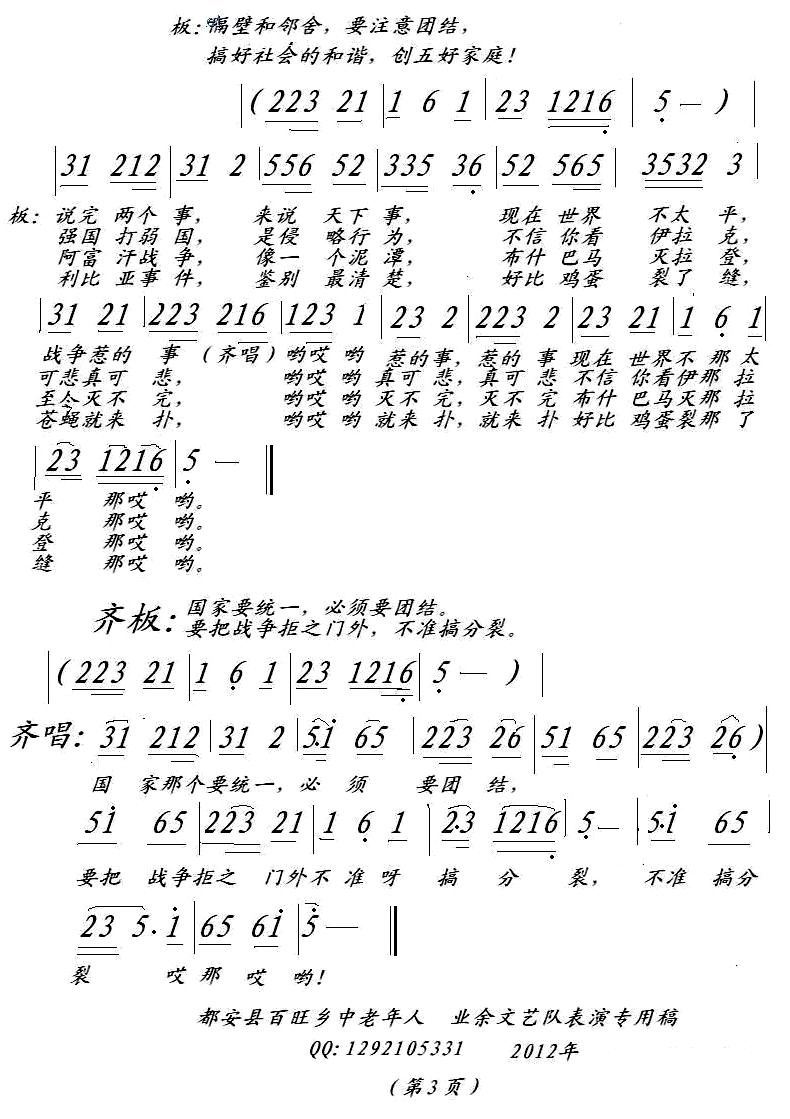 板：隔壁和邻舍，要注意团结，
搞好社会的和谐，创五好家庭！
(223 21 | 1 6 1 | 23 1216 | 5 — )
31 212 | 31 2 | 556 52 | 335 36 | 52 565 | 3532 3
板：说完 两个 事， 来说 天下 事， 现在 世界 不太 平，
强国 打弱 国， 是侵 略行 为， 不信 你看 伊拉 克，
阿富 汗战 争， 像一 个泥 潭， 布什 巴马 灭拉 登，
利比 亚事 件， 鉴别 最清 楚， 好比 鸡蛋 裂了 缝，
31 21 | 223 216 | 123 1 | 23 2 | 223 2 | 23 21 | 1 6 1
战争惹的 事 （齐唱）哟哎 哟 惹的事，惹的 事 现在 世界不 那 太
可悲真可 悲， 哟哎 哟 真可 悲，真可 悲 不信 你看伊那 拉
至今灭不 完， 哟哎 哟 灭不 完，灭不 完 布什 巴马灭那 拉
苍蝇就来 扑， 哟哎 哟 就来 扑，就来 扑 好比 鸡蛋裂那 了
23 1216 | 5 —
平 那哎 哟。
克 那哎 哟。
登 那哎 哟。
缝 那哎 哟。
齐板：国家要统一，必须要团结。
要把战争拒之门外，不准搞分裂。
(223 21 | 1 6 1 | 23 1216 | 5 — )
齐唱：31 212 | 31 2 | 5·1 65 | 223 26 | 51 65 | 223 26 )
国 家那个要统一，必 须 要团 结，
51 65 | 223 21 | 1 6 1 | 2·3 1216 | 5 — | 5·1 65
要把 战争拒之 门外不 准 呀 搞 分 裂， 不准 搞分
23 5· 1 | 65 61 | 5 —
裂 哎 那 哎 哟！
都安县百旺乡中老年人 业余文艺队表演专用稿
QQ:1292105331 2012年
（第3页）